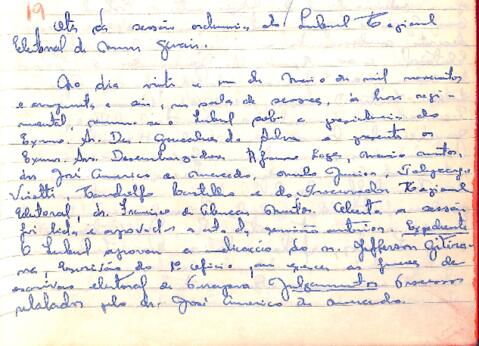 19
Ata da sessão ordinaria do Tribunal Regional
Eleitoral de Minas Gerais.
No dia vinte e um de Maio de mil novecentos
e cinquenta e seis, na sala de sessões, à hora regi-
mental, reuniu-se o Tribunal sob a presidencia do
Exmo. Sr. Des. Gonçalves da Silva e presente os
Exmos. Srs. Desembargadores Afonso Lages, Mario Matos,
drs. José Americo de Macedo, Junior,
Castello e do Procurador Regional
Eleitoral, dr. Francisco de Martins. Aberta a sessão
foi lida e aprovada a ata da reunião anterior. Expediente
O Tribunal aprovou a indicação do sr. Jefferson
Escrivão do 1º oficio, para exercer as funções de
escrivão eleitoral de Julgamentos Processos
relatados pelo dr. José Americo de Macedo.